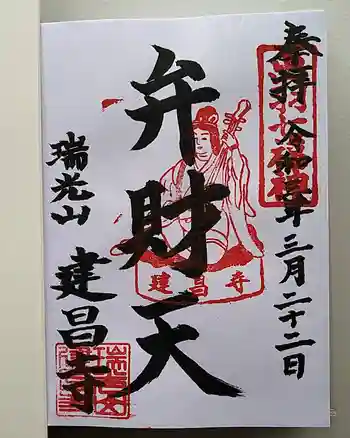 奉拝
令和三年二月二十二日
弁財天
建昌寺
瑞光山
建昌寺